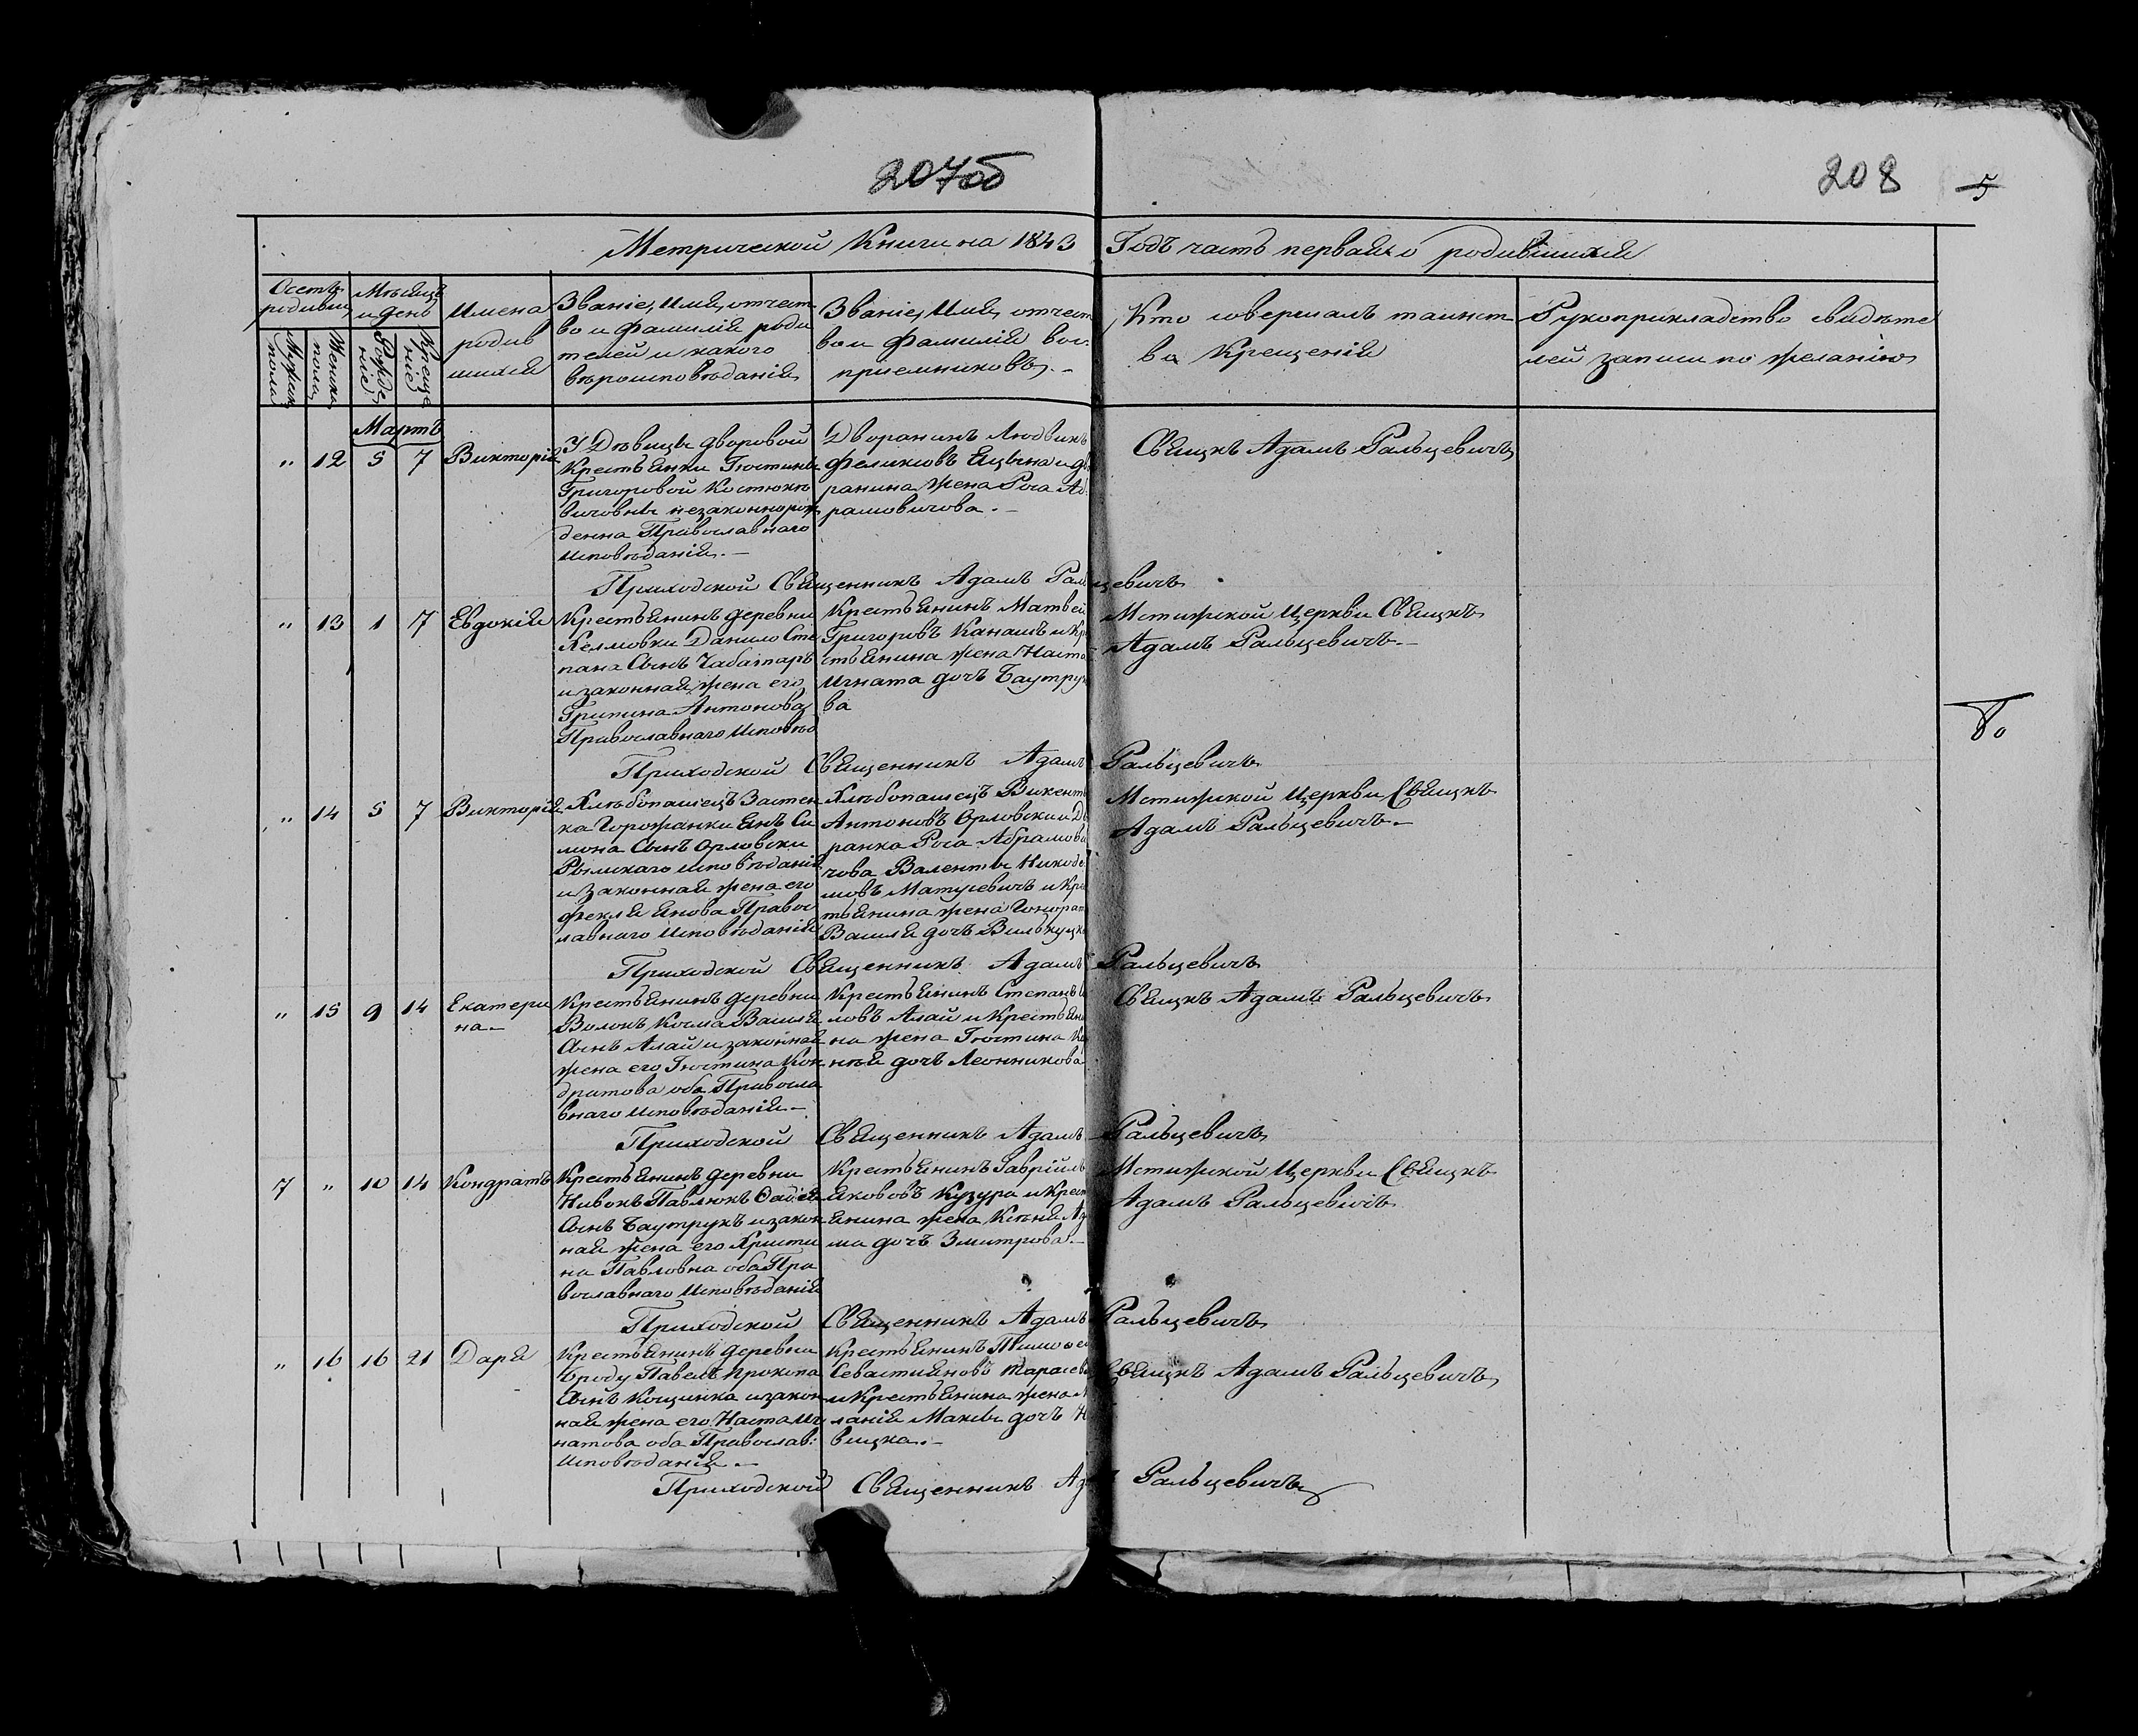 207об
208 5
Метрической Книги на 1843 Годъ часть первая о родившихся
Мѣсяцъ и день
Мужск пола
Женск пола
Рожде ніе
Креще ніе
Имена
родив
шихся
Званіе, Имя, отчест
во и Фамилія роди
телей и какого
вѣроисповѣданія
Званіе, Имя, отчест
во и Фамилія вос
пріемниковъ.-
Кто совершалъ таинст
ва Крещенія
Рукоприкладство свидѣте
лей записи по желанію
Мартъ
" 12 5 7 Викторія
У Дѣвицы дворовой
Крестьянки Гюстины
Григоровой Костюко
вичовны незаконнорож
денна Православнаго
Исповѣданія.-
Дворанинъ Людвикъ
Феликсовъ и
ранина жена Роза Аб
рамовичова.-
Свящкъ Адамъ Ральцевичъ
Приходской Священникъ Адамъ Ральцевичъ
" 13 1 7 Евдокія
Крестьянинъ деревни
Данило Сте
пана Сынъ Чаботаръ
и законная жена его
Грипина Антонова
Православнаго Исповѣд
Крестьянинъ Матвей
Григоровъ Канашъ и Кр
стьянина жена Наста
Игната дочъ Баутру
ва
Мстижской Церкви Свящкъ
Адамъ Ральцевичъ.-
Приходской Священникъ Адамъ Ральцевичъ
" 14 5 7 Викторія
Хлѣбопашецъ Застен
ка Горожанки Янъ Си
мона Сынъ Орловски
Рымскаго исповѣданія
и Законная жена его
Фекля Янова Правос
лавнаго Исповѣданія
Хлѣбопашецъ Викент
Антоновъ Орловски и Дв
ранка Роза Абрамови
чова Валенты Никоде
мовъ Матусевичъ и Кре
тьянина жена Гонорат
Василя дочъ
Мстижской Церкви Свящкъ
Адамъ Ральцевичъ.-
Приходской Священникъ Адамъ Ральцевичъ
" 15 9 14 Екатери
на.-
Крестьянинъ деревни
Волокъ Косма Василя
Сынъ Алай и законная
жена его Гюстина Кон
дратова оба Правосла
внаго Исповѣданія.-
Крестьянинъ Степанъ
ловъ Алай и Крестьяни
на жена Гюстина
дочъ Леонникова
Свящкъ Адамъ Ральцевичъ
Приходской Священникъ Адамъ Ральцевичъ
7 " 10 14 Кондратъ
Крестьянинъ деревни
Нивокъ Павлюкъ
Сынъ Баутрукъ и закон
ная жена его Христи
на Павловна оба Пра
вославнаго Исповѣданія
Крестьянинъ Гавріилъ
Якововъ Кузура и Крест
янина жена Ад
ма дочъ Змитрова.-
Мстижской Церкви Свящкъ
Адамъ Ральцевичъ
Приходской Священникъ Адамъ Ральцевичъ
" 16 16 21 Даря
Крестьянинъ деревни
Броду Павелъ Прокопа
Сынъ и закон
ная жена его Наста Иг
натова оба Православ:
Исповѣданія.-
Крестьянинъ Тимофей
Севастиановъ
и Крестьянина жена
ланія дочъ
вицка.-
Свящкъ Адамъ Ральцевичъ
Приходской Священникъ Ад Ральцевичъ